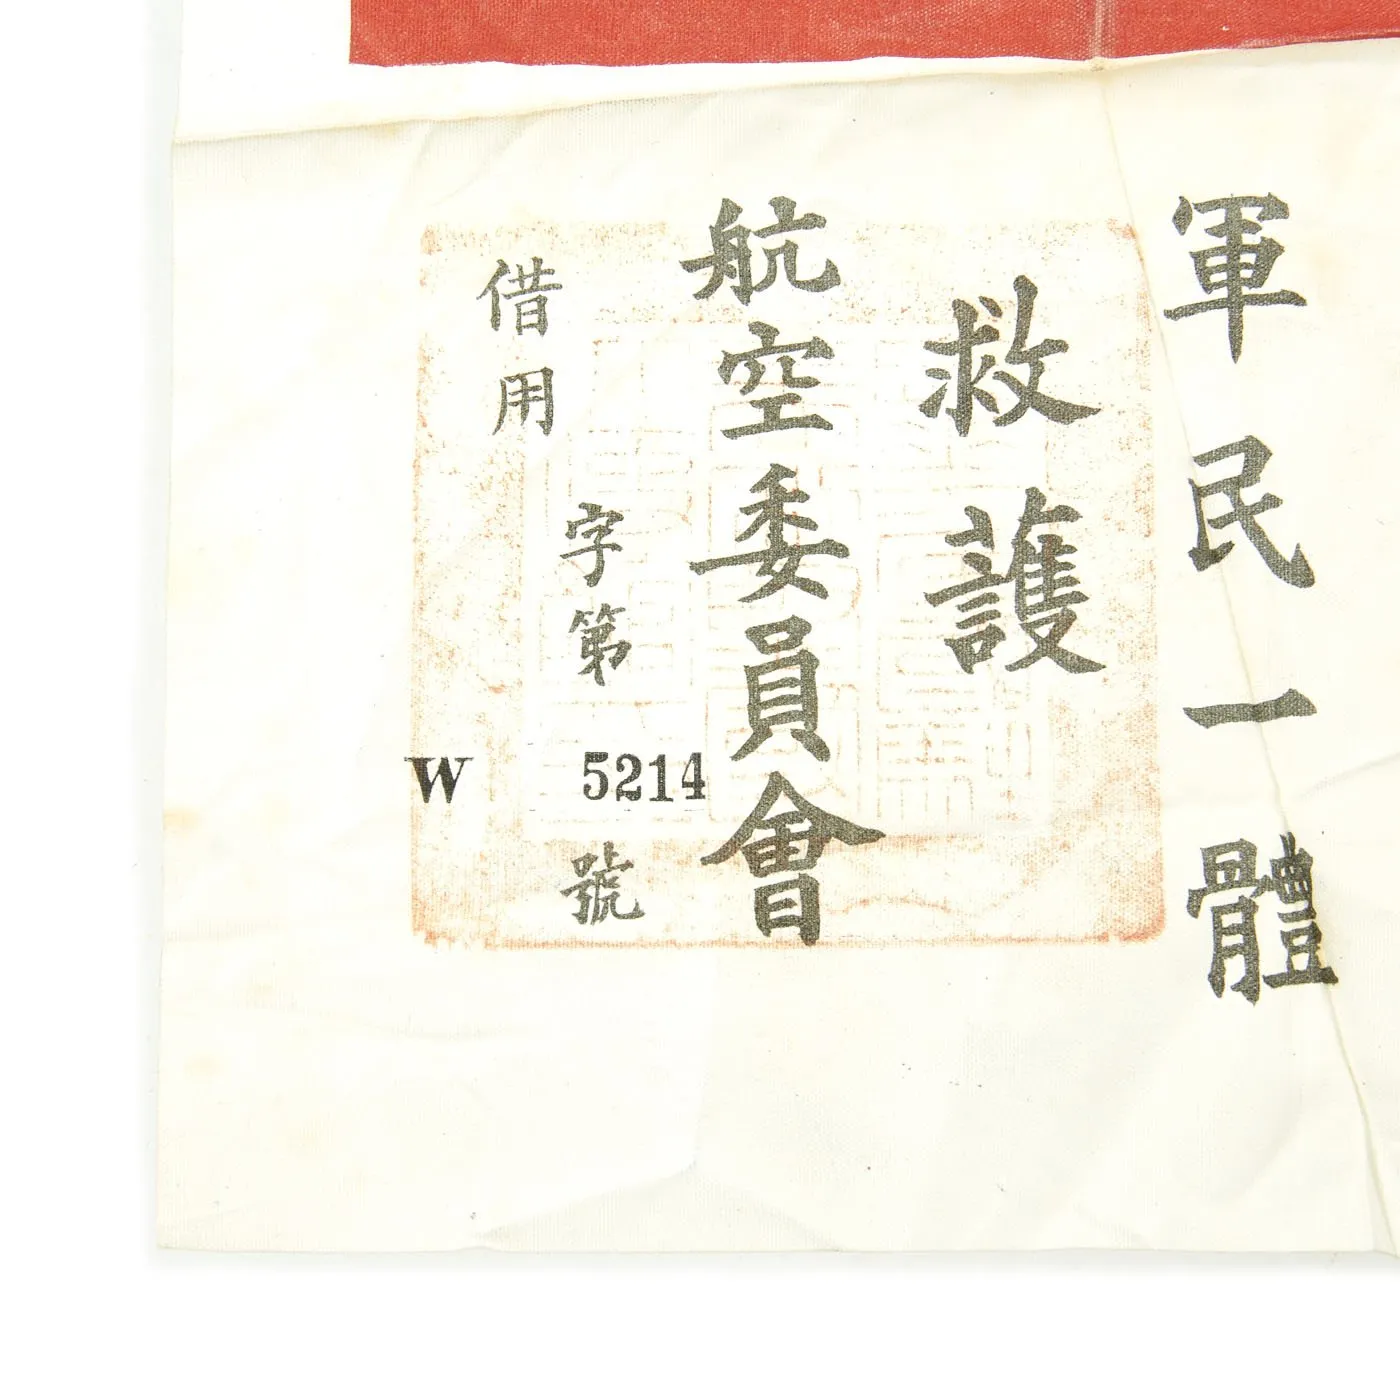 軍民一體
救護
航空委員會
借用
字第
W 5214
號